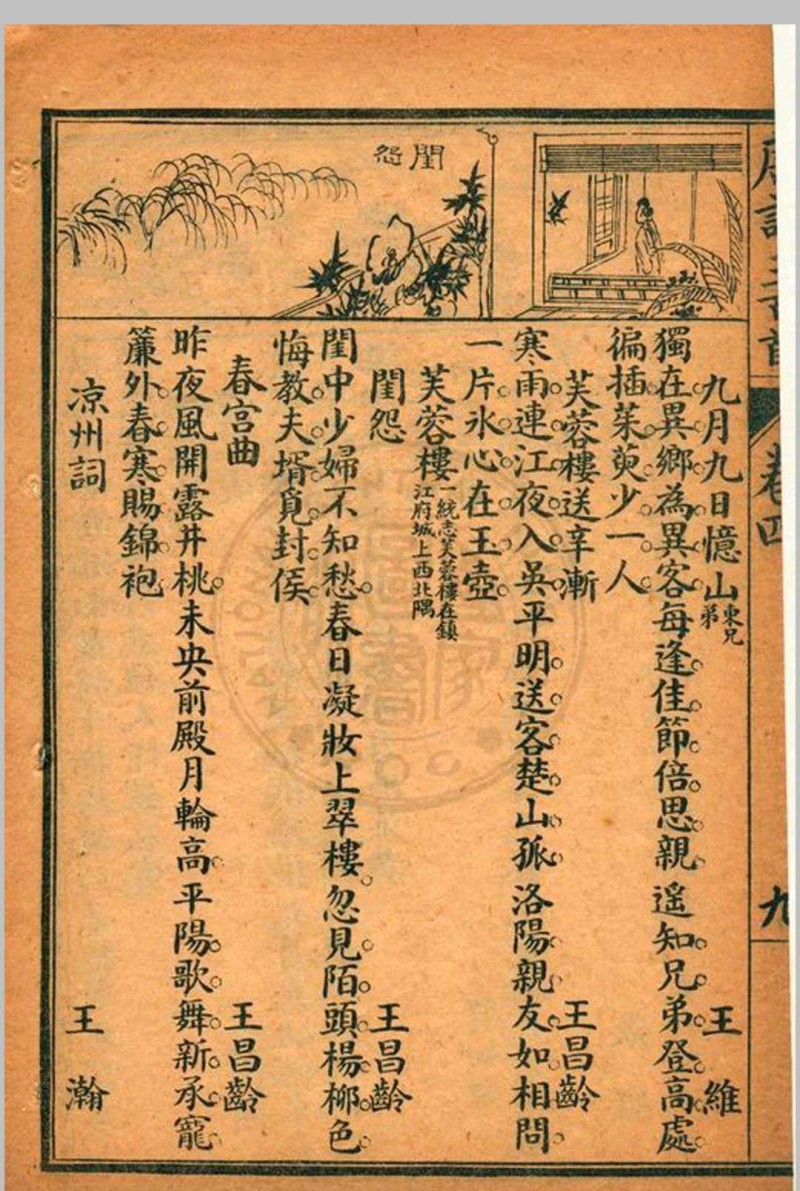 閨怨
唐詩三百首
卷四
九
九月九日憶山東兄弟 王維
獨在異鄉為異客每逢佳節倍思親遥知兄弟登高處
徧插茱萸少一人
芙蓉樓送辛漸 王昌齡
寒雨連江夜入吳平明送客楚山孤洛陽親友如相問
一片氷心在玉壺
芙蓉樓一統志芙蓉樓在鎮江府城上西北隅
閨怨 王昌齡
閨中少婦不知愁春日凝妝上翠樓忽見陌頭楊柳色
悔教夫壻覓封侯
春宮曲 王昌齡
昨夜風開露井桃未央前殿月輪高平陽歌舞新承寵
簾外春寒賜錦袍
凉州詞 王瀚